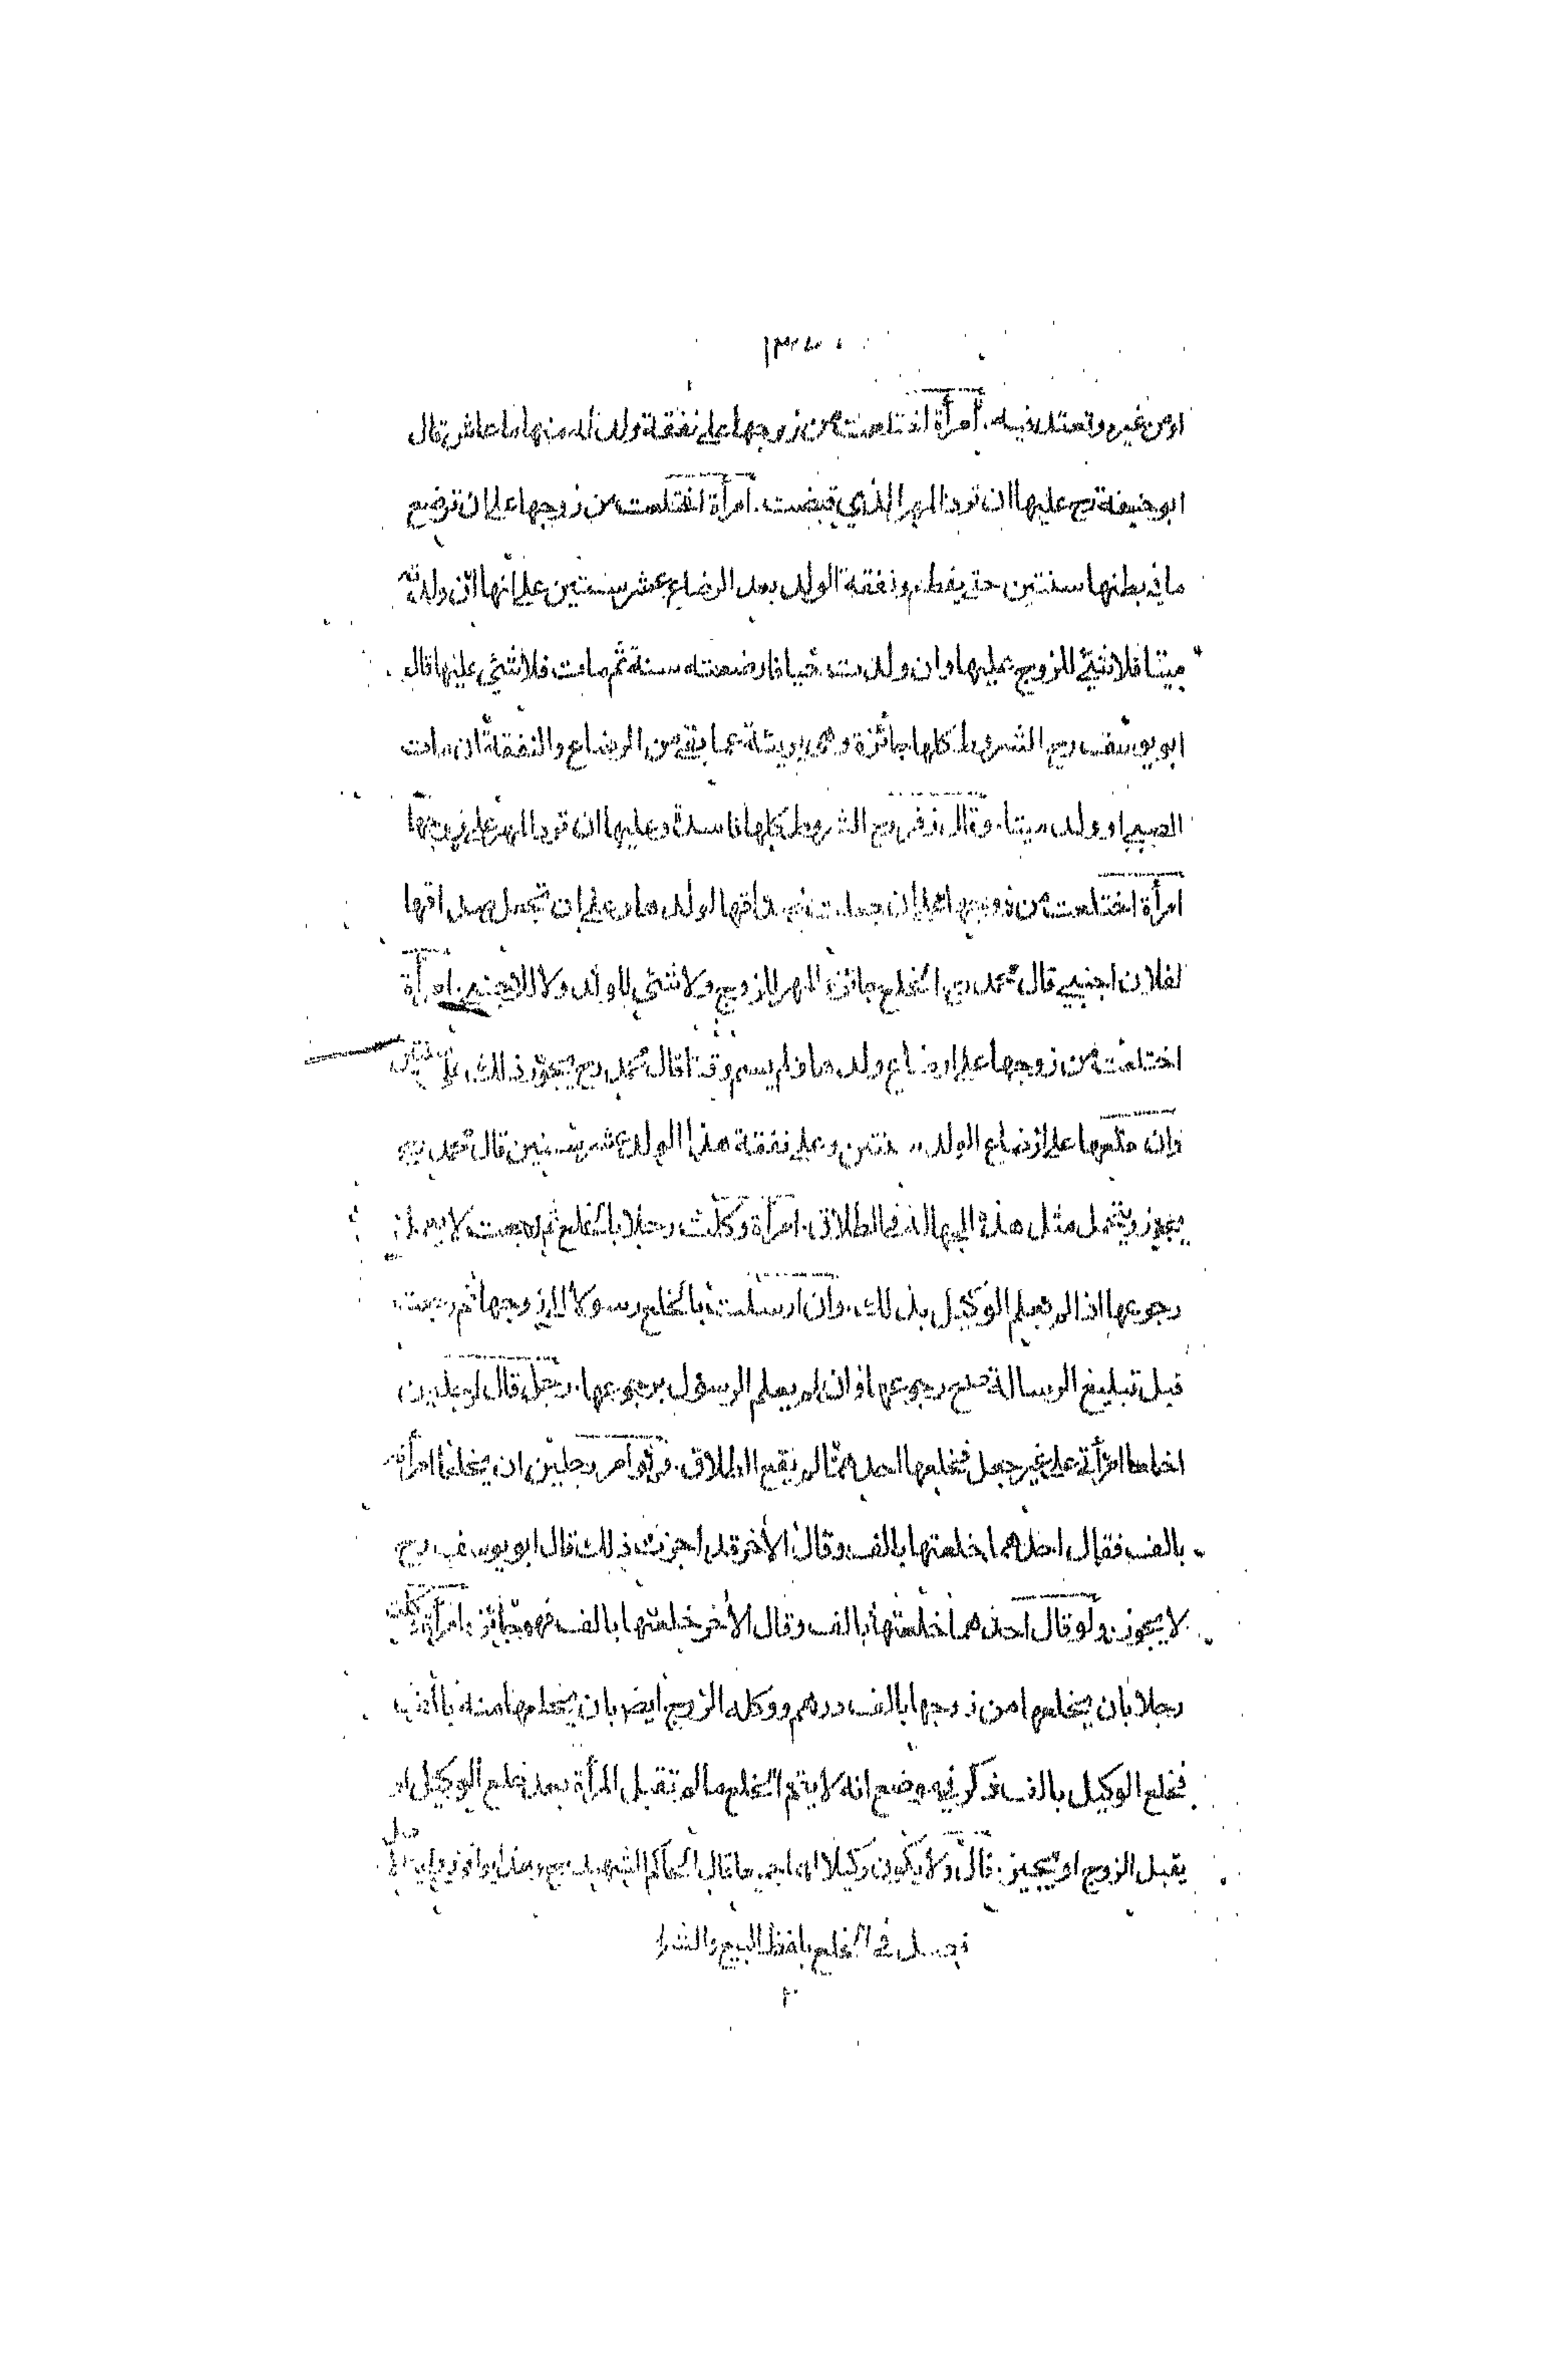 او من غيره وتعتد فيه. امرأة اختلعت من زوجها على نفقة ولد له منها ما عاش قال
ابو حنيفة رح عليها ان ترد المهر الذي قبضت. امرأة اختلعت من زوجها على ان ترضع
ما في بطنها سنتين حتى يفطم ونفقة الولد بعد الرضاع عشر سنين على انها ان ولدته
ميتا فلا شئ للزوج عليها وان ولدت حيا فارضعته سنة ثم مات فلا شئ عليها قال
ابو يوسف رح الشروط كلها جائزة وهي بريئة عما بقي من الرضاع والنفقة ان مات
الصبي او ولد ميتا. وقال زفر رح الشروط كلها فاسدة وعليها ان ترد المهر على زوجها
امرأة اختلعت من زوجها على ان جعلت صداقها لولدها او على ان تجعل صداقها
لفلان اجنبي قال محمد رح الخلع جائز والمهر للزوج ولا شئ للولد ولا للاجنبي. امرأة
اختلعت من زوجها على ارضاع ولدها ولم يسم وقتا قال محمد رح يجوز ذلك على سنتين
وان خلعها على ارضاع الولد سنتين وعلى نفقة هذا الولد عشر سنين قال محمد رح
يجوز ويتحمل مثل هذه الجهالة في الطلاق. امرأة وكلت رجلا بالخلع ثم رجعت لا يعمل
رجوعها اذا لم يعلم الوكيل بذلك. وان ارسلت بالخلع رسولا الى زوجها ثم رجعت
قبل تبليغ الرسالة صح رجوعها وان لم يعلم الرسول برجوعها. رجل قال لرجلين
اخلعا امرأتي على غير جعل فخلعها احدهما لم يقع الطلاق. ولو امر رجلين ان يخلعا امرأته
بالف فقال احدهما خلعتها بالف وقال الأخر قد اجزت ذلك قال ابو يوسف رح
لا يجوز. ولو قال احدهما خلعتها بالف وقال الأخر خلعتها بالف فهو جائز. امرأة وكلت
رجلا بان يخلعها من زوجها بالف درهم ووكله الزوج ايضا بان يخلعها منه بالف
فخلع الوكيل بالف ذكر في موضع انه لا يتم الخلع ما لم تقبل المرأة بعد خلع الوكيل او
يقبل الزوج او يجيز. قال ولا يكون وكيلا قال الحاكم الشهيد رح
فصل في الخلع بلفظ البيع والشرا